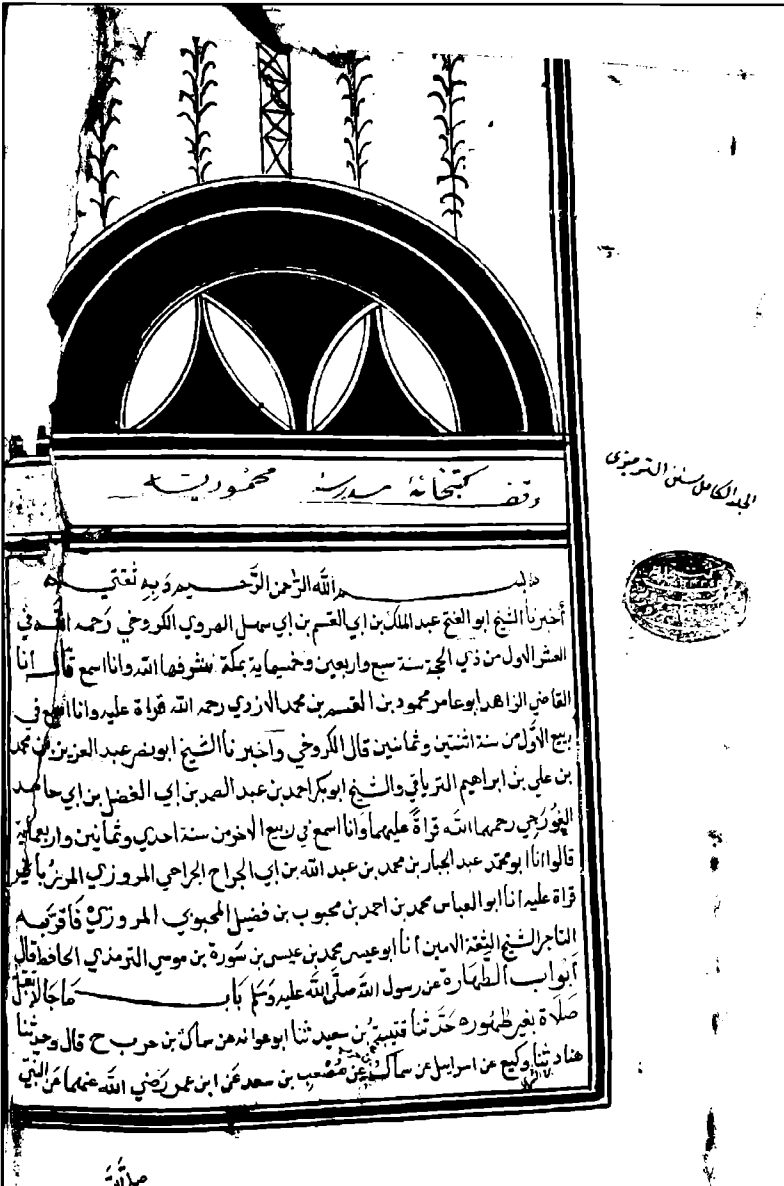 وقف كتبخانهٔ مدرسهٔ محموديه
الجلد الكامل سنن الترمذى
بسم الله الرحمن الرحيم وبه ثقتي
أخبرنا الشيخ ابو الفتح عبد الملك بن ابي القسم بن ابي سهل الهروي الكروخي رحمه الله في
العشر الاول من ذي الحجة سنة سبع واربعين وخمسماية بمكة شرفها الله وانا اسمع قال انا
القاضي الزاهد ابو عامر محمود بن القسم بن محمد الازدي رحمه الله قراة عليه وانا اسمع في
ربيع الاول من سنة اثنتين وثمانين قال الكروخي وأخبرنا الشيخ ابو نصر عبد العزيز بن محمد
بن علي بن ابراهيم الترياقي والشيخ ابو بكر احمد بن عبد الصمد بن ابي الفضل بن ابي حامد
الغورجي رحمهما الله قراةً عليهما وانا اسمع في ربيع الاخر من سنة احدي وثمانين واربعماية
قالوا انا ابو محمد عبد الجبار بن محمد بن عبد الله بن ابي الجراح الجراحي المروزي المرزباني
قراة عليه انا ابو العباس محمد بن احمد بن محبوب بن فضيل المحبوبي المروزي فاقر به
التاجر الشيخ الثقة الامين انا ابو عيسى محمد بن عيسى بن سورة بن موسي الترمذي الحافظ قال
أبواب الطهارة عن رسول الله صلى الله عليه وسلم باب ما جا لا تقبل
صلاة بغير طهور حدثنا قتيبة بن سعيد ثنا ابو عوانه عن سماك بن حرب ح قال وحدثنا
هناد ثنا وكيع عن اسرايل عن سماك عن مصعب بن سعد عن ابن عمر رضي الله عنهما عن النبي